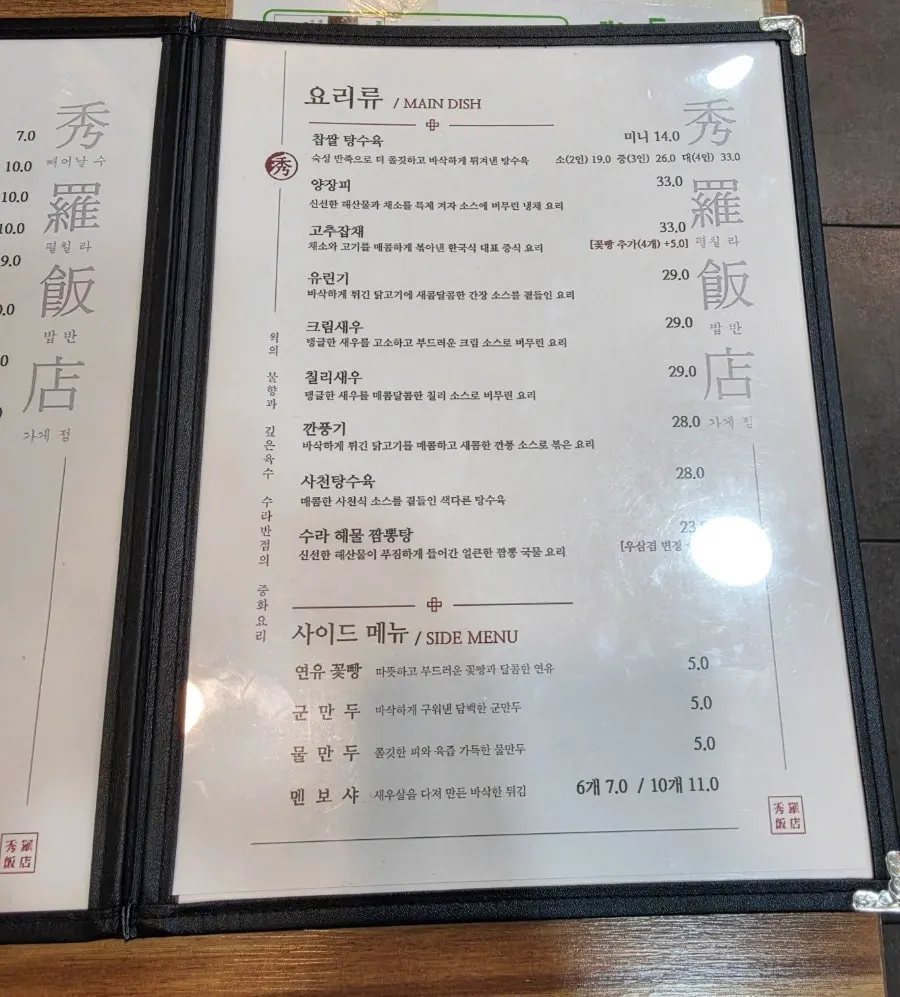 7.0
10.0
10.0
10.0
9.0
秀
빼어날 수
羅
펼칠 라
飯
밥 반
店
가게 점
秀羅
飯店
요리류 / MAIN DISH
찹쌀 탕수육 미니 14.0
숙성 반죽으로 더 쫄깃하고 바삭하게 튀겨낸 탕수육 소(2인) 19.0 중(3인) 26.0 대(4인) 33.0
양장피 33.0
신선한 해산물과 채소를 특제 겨자 소스에 버무린 냉채 요리
고추잡채 33.0
채소와 고기를 매콤하게 볶아낸 한국식 대표 중식 요리 [꽃빵 추가(4개) +5.0]
유린기 29.0
바삭하게 튀긴 닭고기에 새콤달콤한 간장 소스를 곁들인 요리
크림새우 29.0
탱글한 새우를 고소하고 부드러운 크림 소스로 버무린 요리
칠리새우 29.0
탱글한 새우를 매콤달콤한 칠리 소스로 버무린 요리
깐풍기 28.0
바삭하게 튀긴 닭고기를 매콤하고 새콤한 깐풍 소스로 볶은 요리
사천탕수육 28.0
매콤한 사천식 소스를 곁들인 색다른 탕수육
수라 해물 짬뽕탕
신선한 해산물이 푸짐하게 들어간 얼큰한 짬뽕 국물 요리 [우삼겹 변경
사이드 메뉴 / SIDE MENU
연유 꽃빵 따뜻하고 부드러운 꽃빵과 달콤한 연유 5.0
군만두 바삭하게 구워낸 담백한 군만두 5.0
물만두 쫄깃한 피와 육즙 가득한 물만두 5.0
멘보샤 새우살을 다져 만든 바삭한 튀김 6개 7.0 / 10개 11.0
秀
웍의 불향과 깊은육수 수라반점의 중화요리
秀
羅
펼칠 라
飯
밥 반
店
가게 점
秀羅
飯店